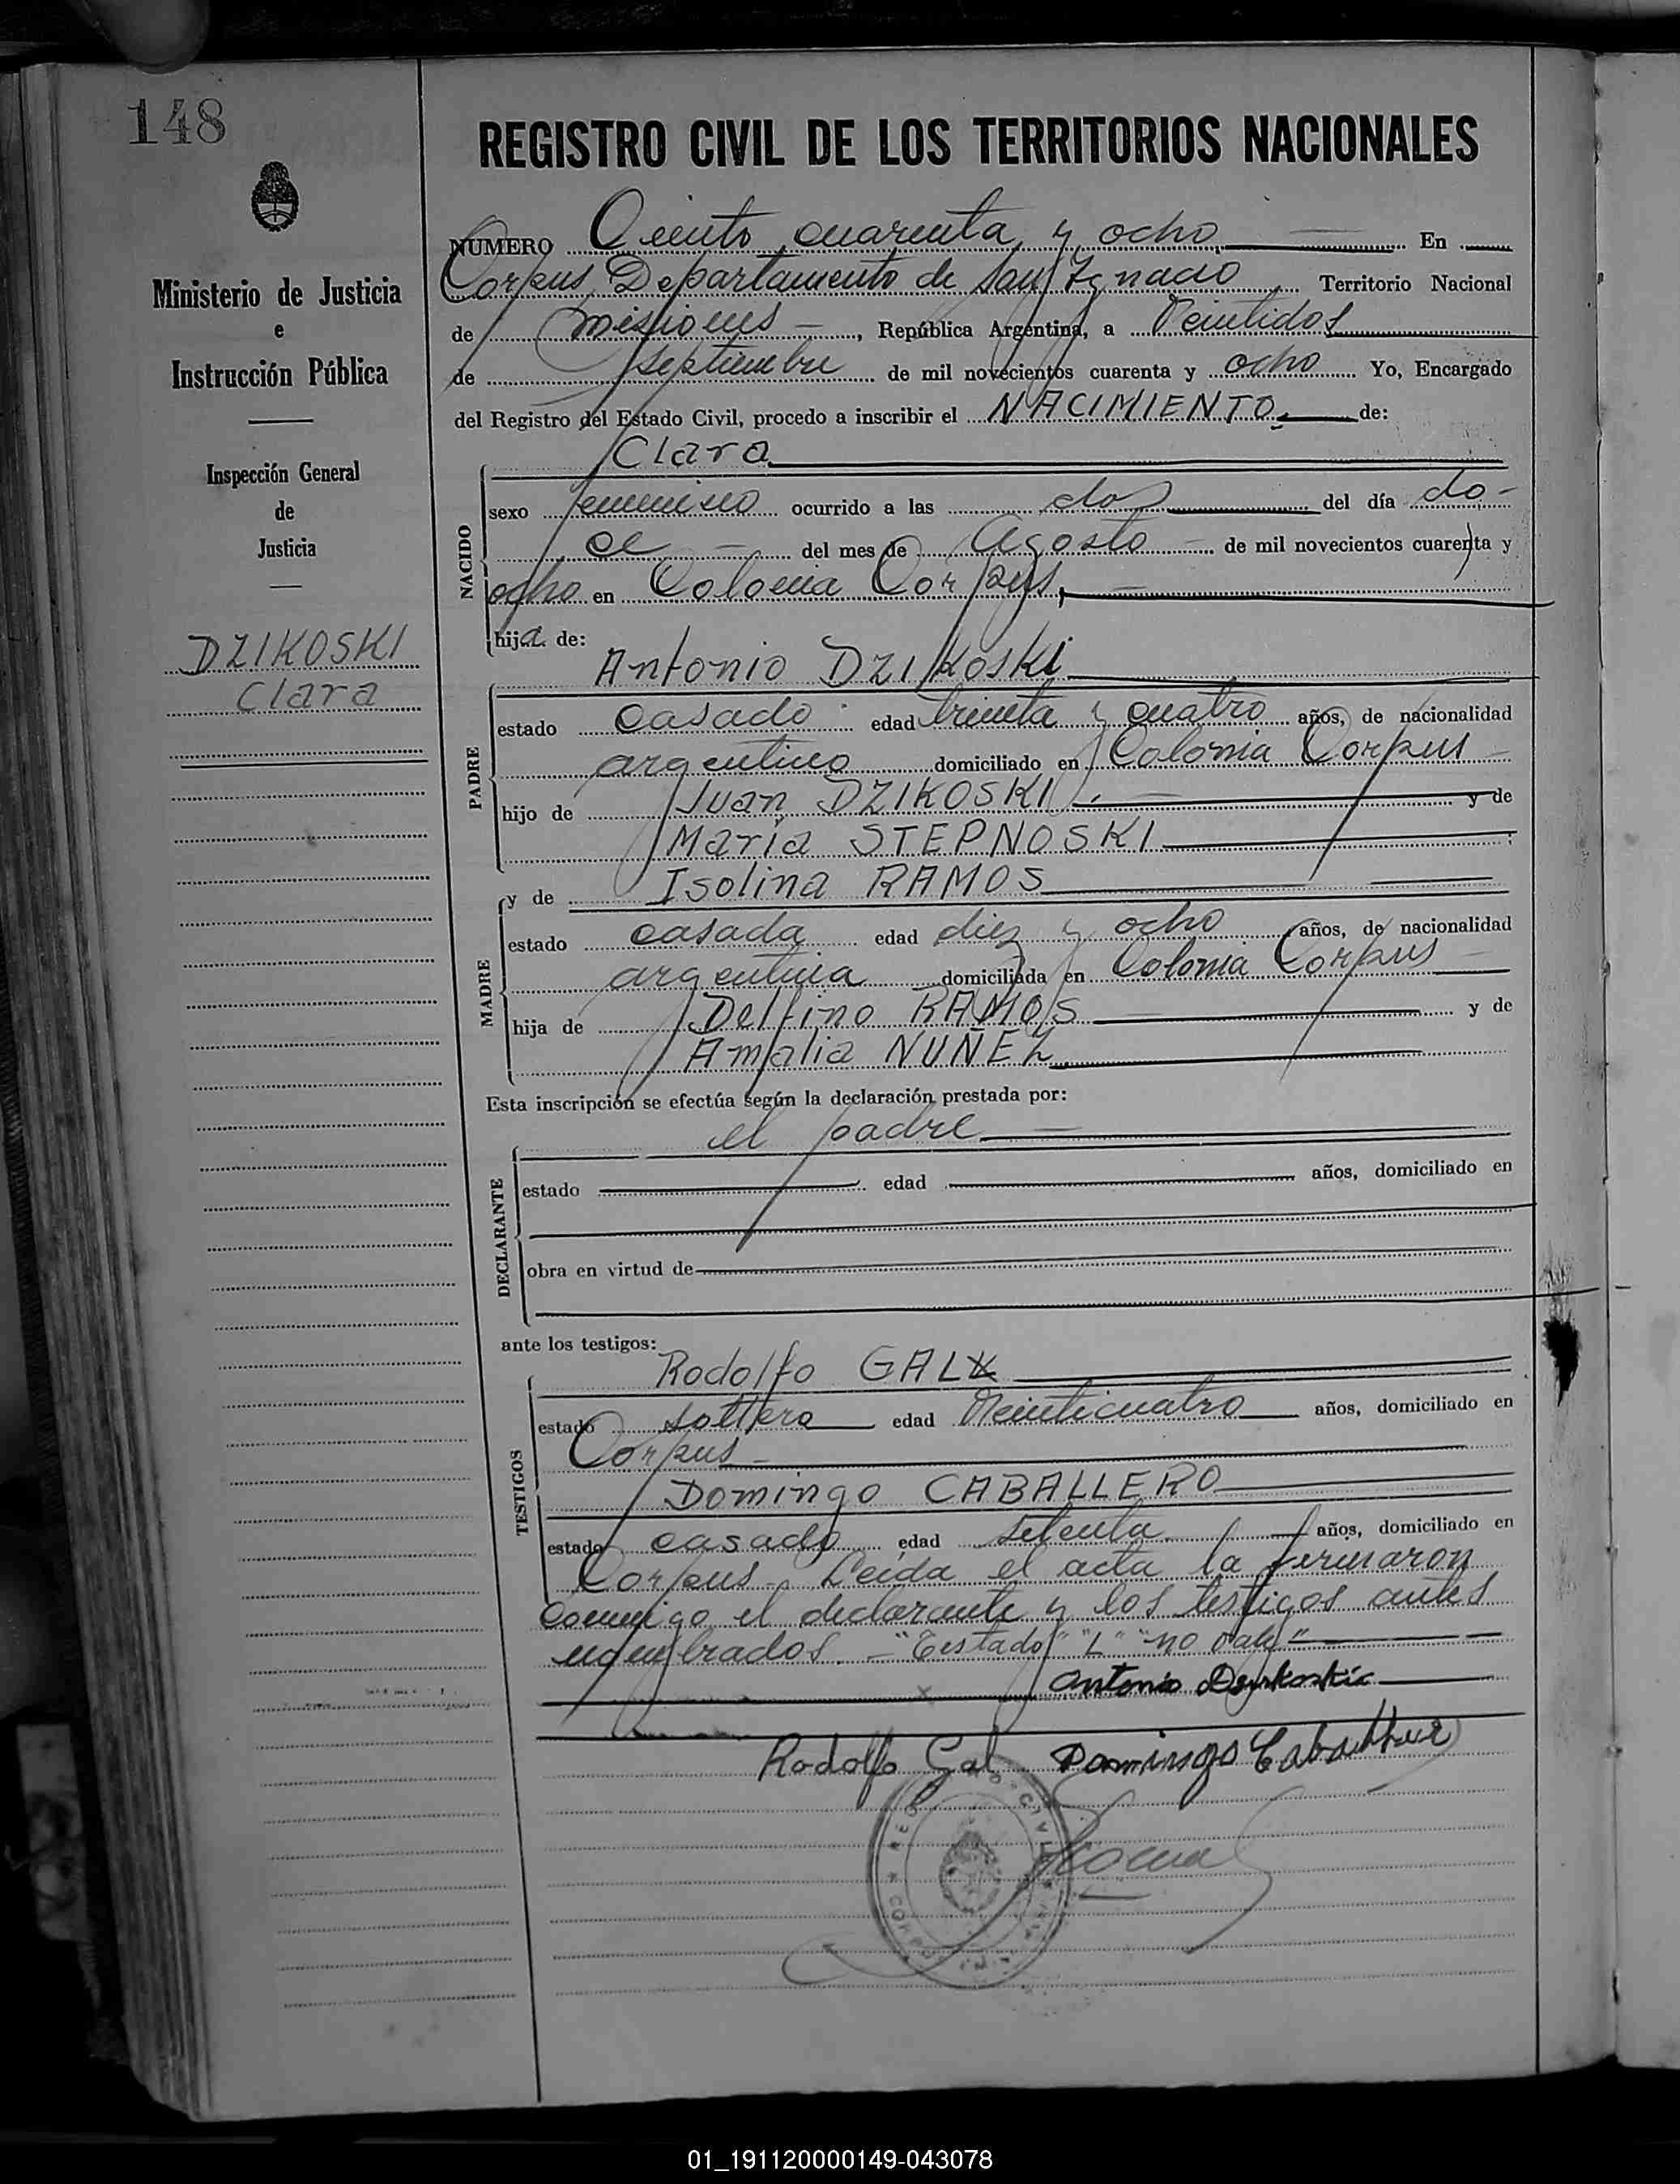 148
REGISTRO CIVIL DE LOS TERRITORIOS NACIONALES
Ministerio de Justicia
e
Instrucción Pública
Inspección General
de
Justicia
DZIKOSKI
Clara
NUMERO Ciento cuarenta y ocho En
Corpus Departamento de San Ignacio Territorio Nacional
de Misiones, República Argentina, a Veintidos
de septiembre de mil novecientos cuarenta y ocho Yo, Encargado
del Registro del Estado Civil, procedo a inscribir el NACIMIENTO de:
Clara
NACIDO
sexo femenino ocurrido a las dos del día do-
ce del mes de Agosto de mil novecientos cuarenta y
ocho en Colonia Corpus,
hija de:
Antonio DZIKOSKI
PADRE
estado casado edad treinta y cuatro años, de nacionalidad
argentino domiciliado en Colonia Corpus
hijo de Juan DZIKOSKI y de
María STEPNOSKI
y de Isolina RAMOS
MADRE
estado casada edad diez y ocho años, de nacionalidad
argentina domiciliada en Colonia Corpus
hija de Delfino RAMOS y de
Amalia NUÑEZ
Esta inscripción se efectúa según la declaración prestada por:
el padre
DECLARANTE
estado edad años, domiciliado en
obra en virtud de
ante los testigos:
Rodolfo GAL
TESTIGOS
estado soltero edad Veinticuatro años, domiciliado en
Corpus
Domingo CABALLERO
estado casado edad setenta años, domiciliado en
Corpus - Leida el acta la firmaron
conmigo el declarante y los testigos antes
nombrados. - "Testado" "L" "no vale"
Antonio
Rodolfo Gal Domingo
01_191120000149-043078